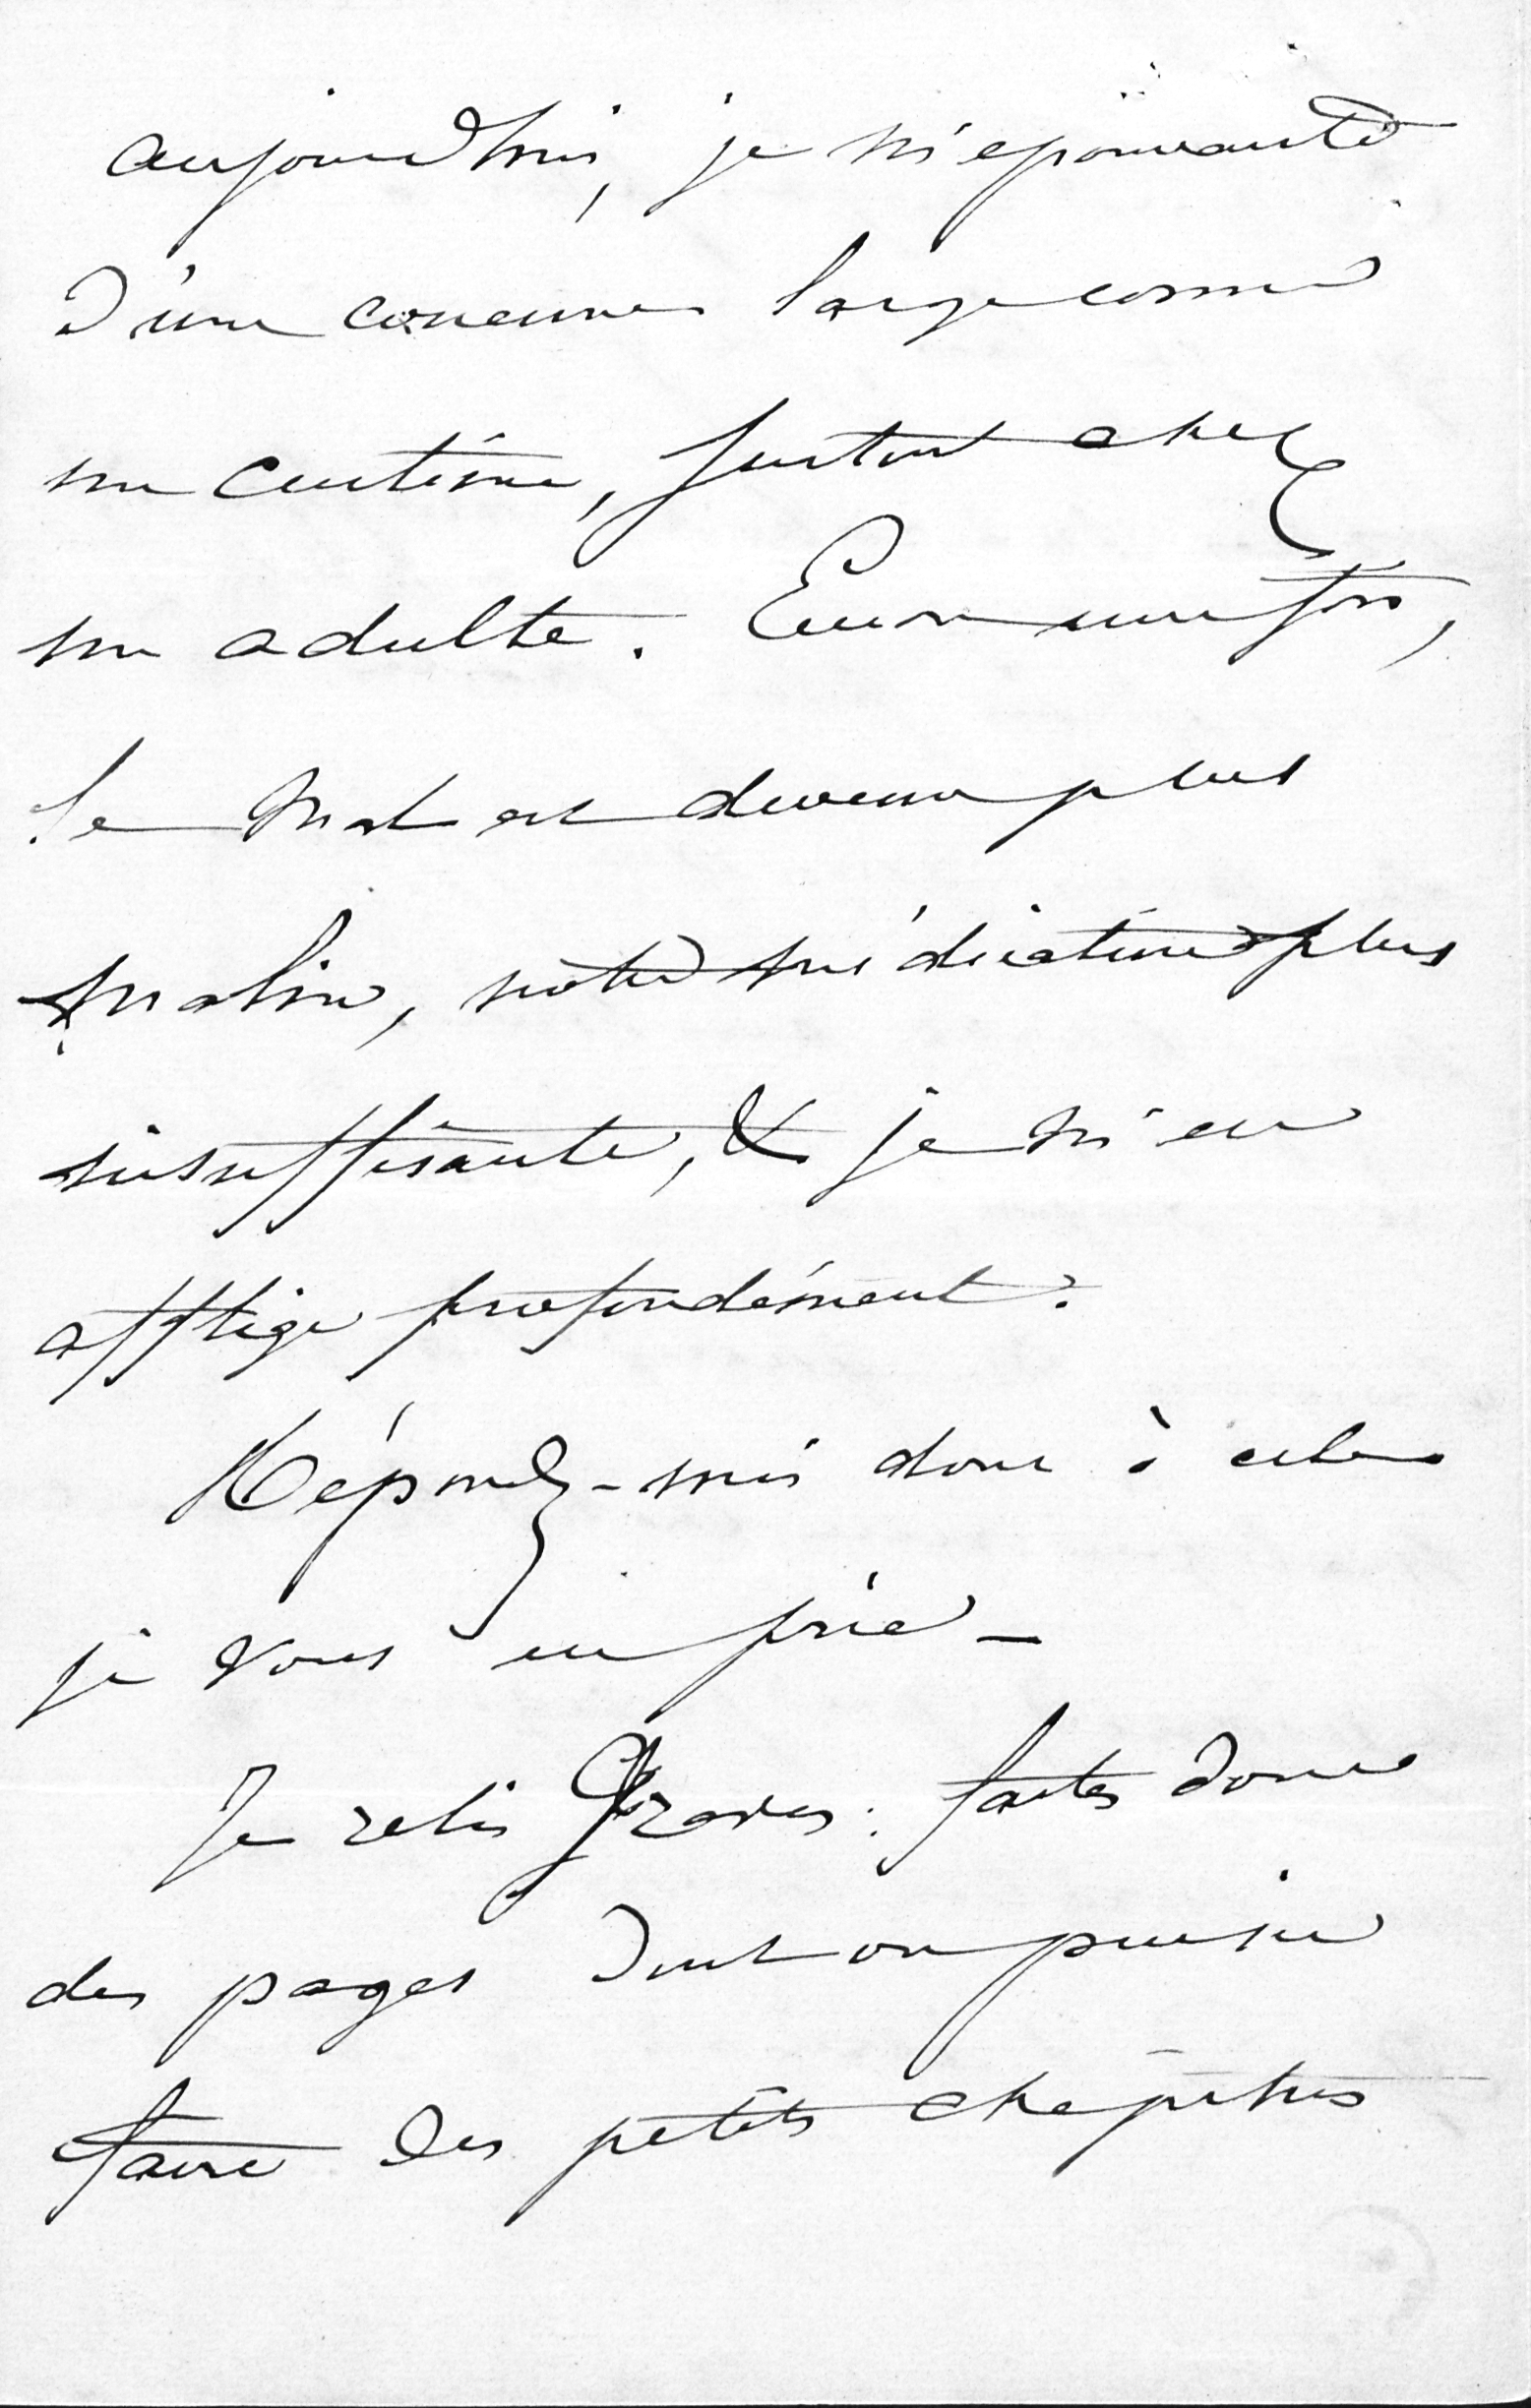 aujourd'hui, je m'épouvante
d'une couenne large comme
un centime, surtout chez
un adulte. Encore une fois,
le mal est devenu plus
malin, notre médication plus
insuffisante, & je m'en
afflige profondément.
Répondez-moi donc à cela
je vous en prie –
Je relis Graves : faites donc
des pages dont on puisse
faire des petits chapitres